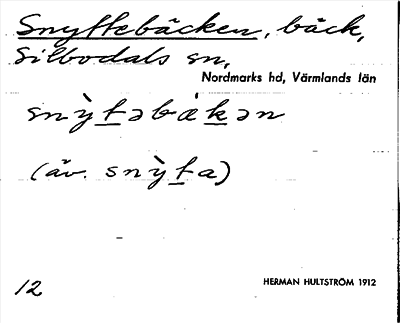 Snyftebäcken, bäck,
Silbodals sn,
Nordmarks hd, Värmlands län
snỳt̲əbæ̀k̲ən
(äv. snỳt̲a)
12
HERMAN HULTSTRÖM 1912